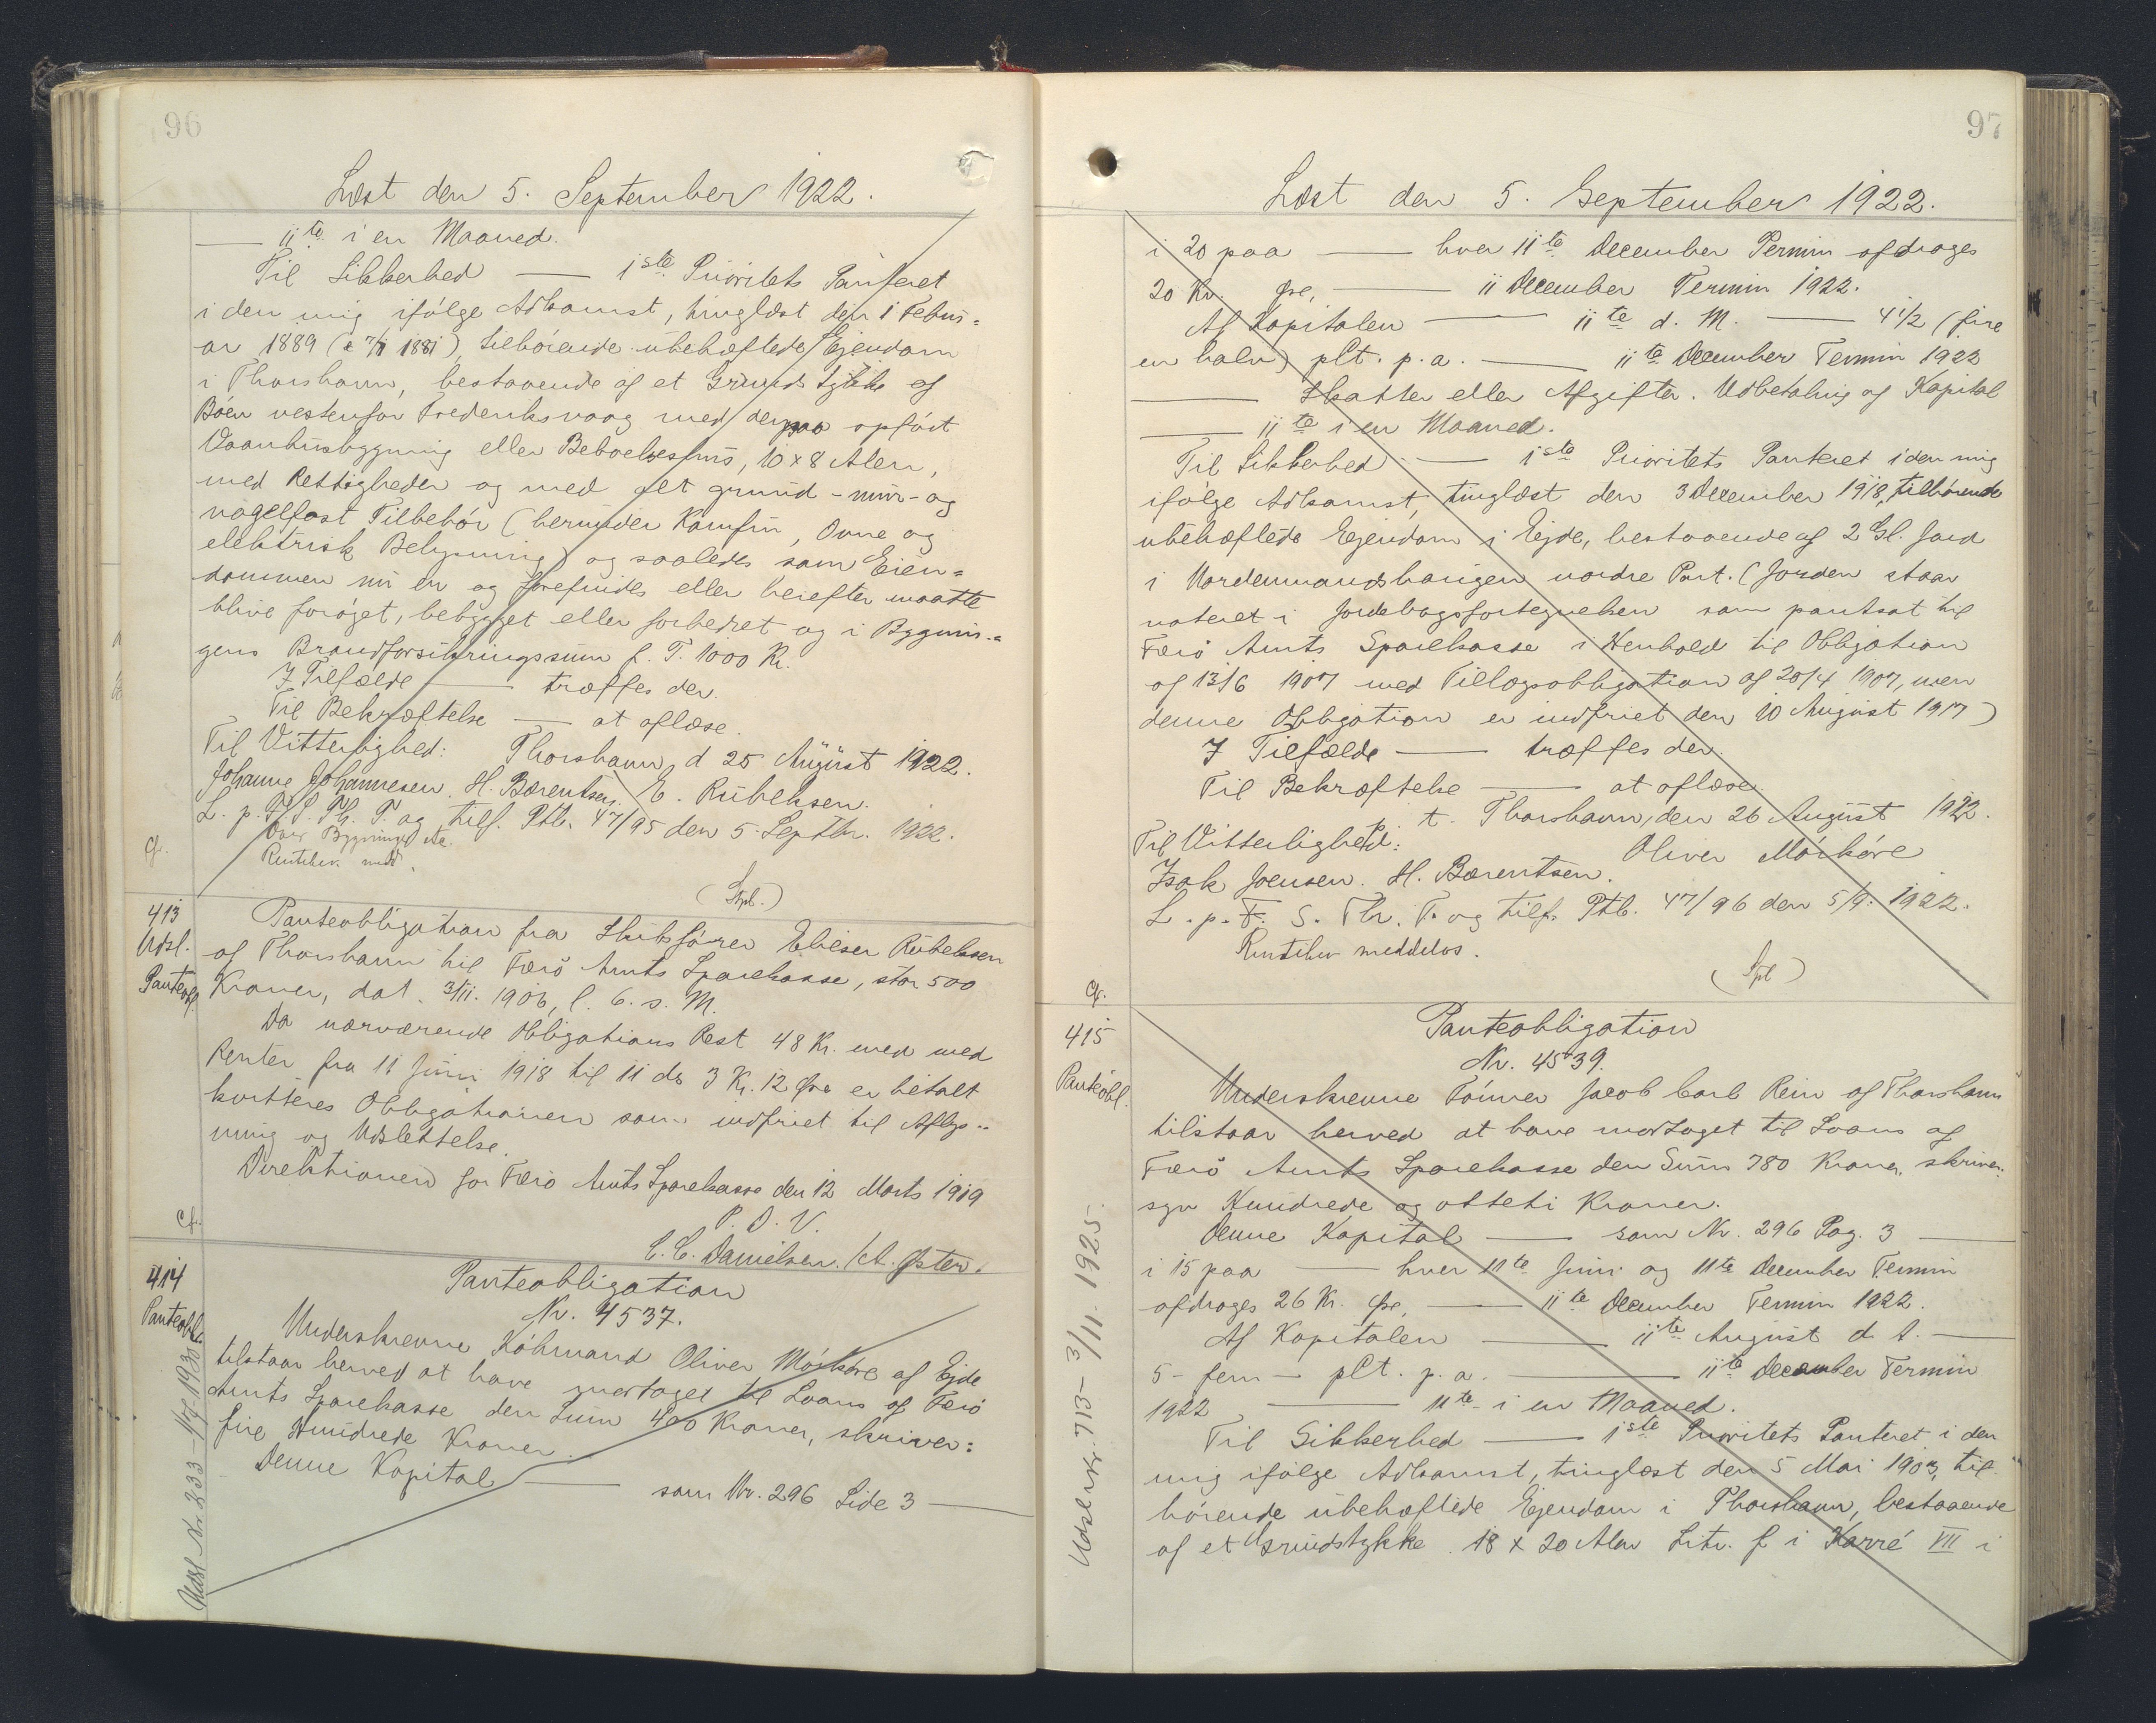 96
Læst den 5. September 1922.
—— 11te i en Maaned.
Til Sikkerhed —— 1ste Prioritets Panteret
i den mig ifølge Adkomst, tinglæst den 1 Febru=
ar 1889 ( 7/11 1881), tilhørende ubehæftede Ejendom
i Thorshavn, bestaaende af et Grundstykke af
Bøen vestenfor Frederiksvaag med derpaa opført
Vaanhusbygning eller Beboelseshus, 10 x 8 Alen,
med Rettigheder og med alt grund- mur- og
nagelfast Tilbehør (herunder Komfur, Ovne og
elektrisk Belysning) og saaledes som Eien=
dommen nu er og forefindes eller herefter maatte
blive forøget, bebygget eller forbedret og i Bygnin=
gens Brandforsikringssum f. T. 1000 Kr.
I Tilfælde —— træffes der.
Til Bekræftelse —— at aflæse.
Til Vitterlighed: Thorshavn, d 25 August 1922.
Johanne Johannesen. H. Bærentsen. E. Rubeksen.
L. p. F. S. Th. T. og tilf. Ptb. 47/95 den 5. Septbr. 1922.
over Bygninger
Rentebrev medd.
cf.
(Stpl.)
413
Udsl.
Panteobl.
Panteobligation fra Skibsfører Elieser Rubeksen
af Thorshavn til Færø Amts Sparekasse, stor 500
Kroner, dat. 3/11. 1906, l. 6. s. M.
Da nærværende Obligations Rest 48 Kr. med med
Renter fra 11 Juni 1918 til 11 ds 3 Kr. 12 Øre er betalt
kvitteres Obligationen som indfriet til Aflys=
ning og Udslettelse.
Direktionen for Færø Amts Sparekasse den 12 Marts 1919
P. D. V.
C. C. Danielsen. / A. Øster.
cf.
414
Panteobl.
Panteobligation
Nr. 4537.
Underskrevne Købmand Oliver Mörköre af Ejde
tilstaar herved at have modtaget til Laans af Færø
Amts Sparekasse den Sum 400 Kroner, skriver:
fire Hundrede Kroner.
Denne Kapital —— som Nr. 296 Side 3 ——
97
Læst den 5. September 1922.
i 20 paa —— hver 11te December Termin afdrages
20 Kr. Øre, —— 11 December Termin 1922.
Af Kapitalen —— 11te d. M. —— 4 1/2 (fire
en halv) pCt. p. a. —— 11te December Termin 1922
—— Skatter eller Afgifter. Udbetaling af Kapital
—— 11te i en Maaned.
Til Sikkerhed —— 1ste Prioritets Panteret i den mig
ifølge Adkomst, tinglæst den 3 December 1918, tilhørende
ubehæftede Ejendom i Ejde, bestaaende af 2 Gl. Jord
i Nordenmandshavgen nordre Part. (Jorden staar
noteret i Jordebogsfortegnelsen som pantsat til
Færø Amts Sparekasse i Henhold til Obligation
af 13/6 1907 med Tillægsobligation af 20/4 1907, men
denne Obligation er indfriet den 10 August 1917)
I Tilfælde —— træffes der.
Til Bekræftelse —— at aflæse.
p. t. Thorshavn, den 26 August 1922.
Til Vitterlighed: Oliver Mörköre
Isak Joensen. H. Bærentsen.
L. p. F. S. Th. T. og tilf. Ptb. 47/96 den 5/9. 1922.
Rentebrev meddeles.
(Stpl)
cf.
415
Panteobl.
Panteobligation
Nr. 4539.
Underskrevne Tømrer Jacob Carl Rein af Thorshavn
tilstaar herved at have modtaget til Laans af
Færø Amts Sparekasse den Sum 780 Kroner, skriver:
syv Hundrede og otteti Kroner.
Denne Kapital —— som Nr. 296 Pag. 3 ——
i 15 paa —— hver 11te Juni og 11te December Termin
afdrages 26 Kr. Øre, —— 11te December Termin 1922.
Af Kapitalen —— 11te August d. A. ——
5 - fem - pCt. p. a. —— 11te December Termin
1922 —— 11te i en Maaned.
Til Sikkerhed —— 1ste Prioritets Panteret i den
mig ifølge Adkomst, tinglæst den 5 Mai 1903, til=
hørende ubehæftede Ejendom i Thorshavn, bestaaende
af et Grundstykke 18 x 20 Alen Litr. f i Karré VII i
Udsl Nr. 233 - 1/7 - 1930
Udsl Nr. 713 - 3/11. 1925.